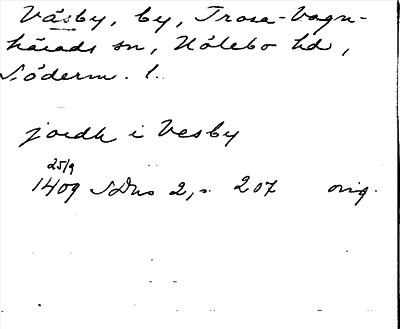 Väsby, by, Trosa-Vagn-
härads sn, Hölebo hd,
Söderm. l.
jordh i Vesby
25/9
1409 SDns 2, s. 207 orig.